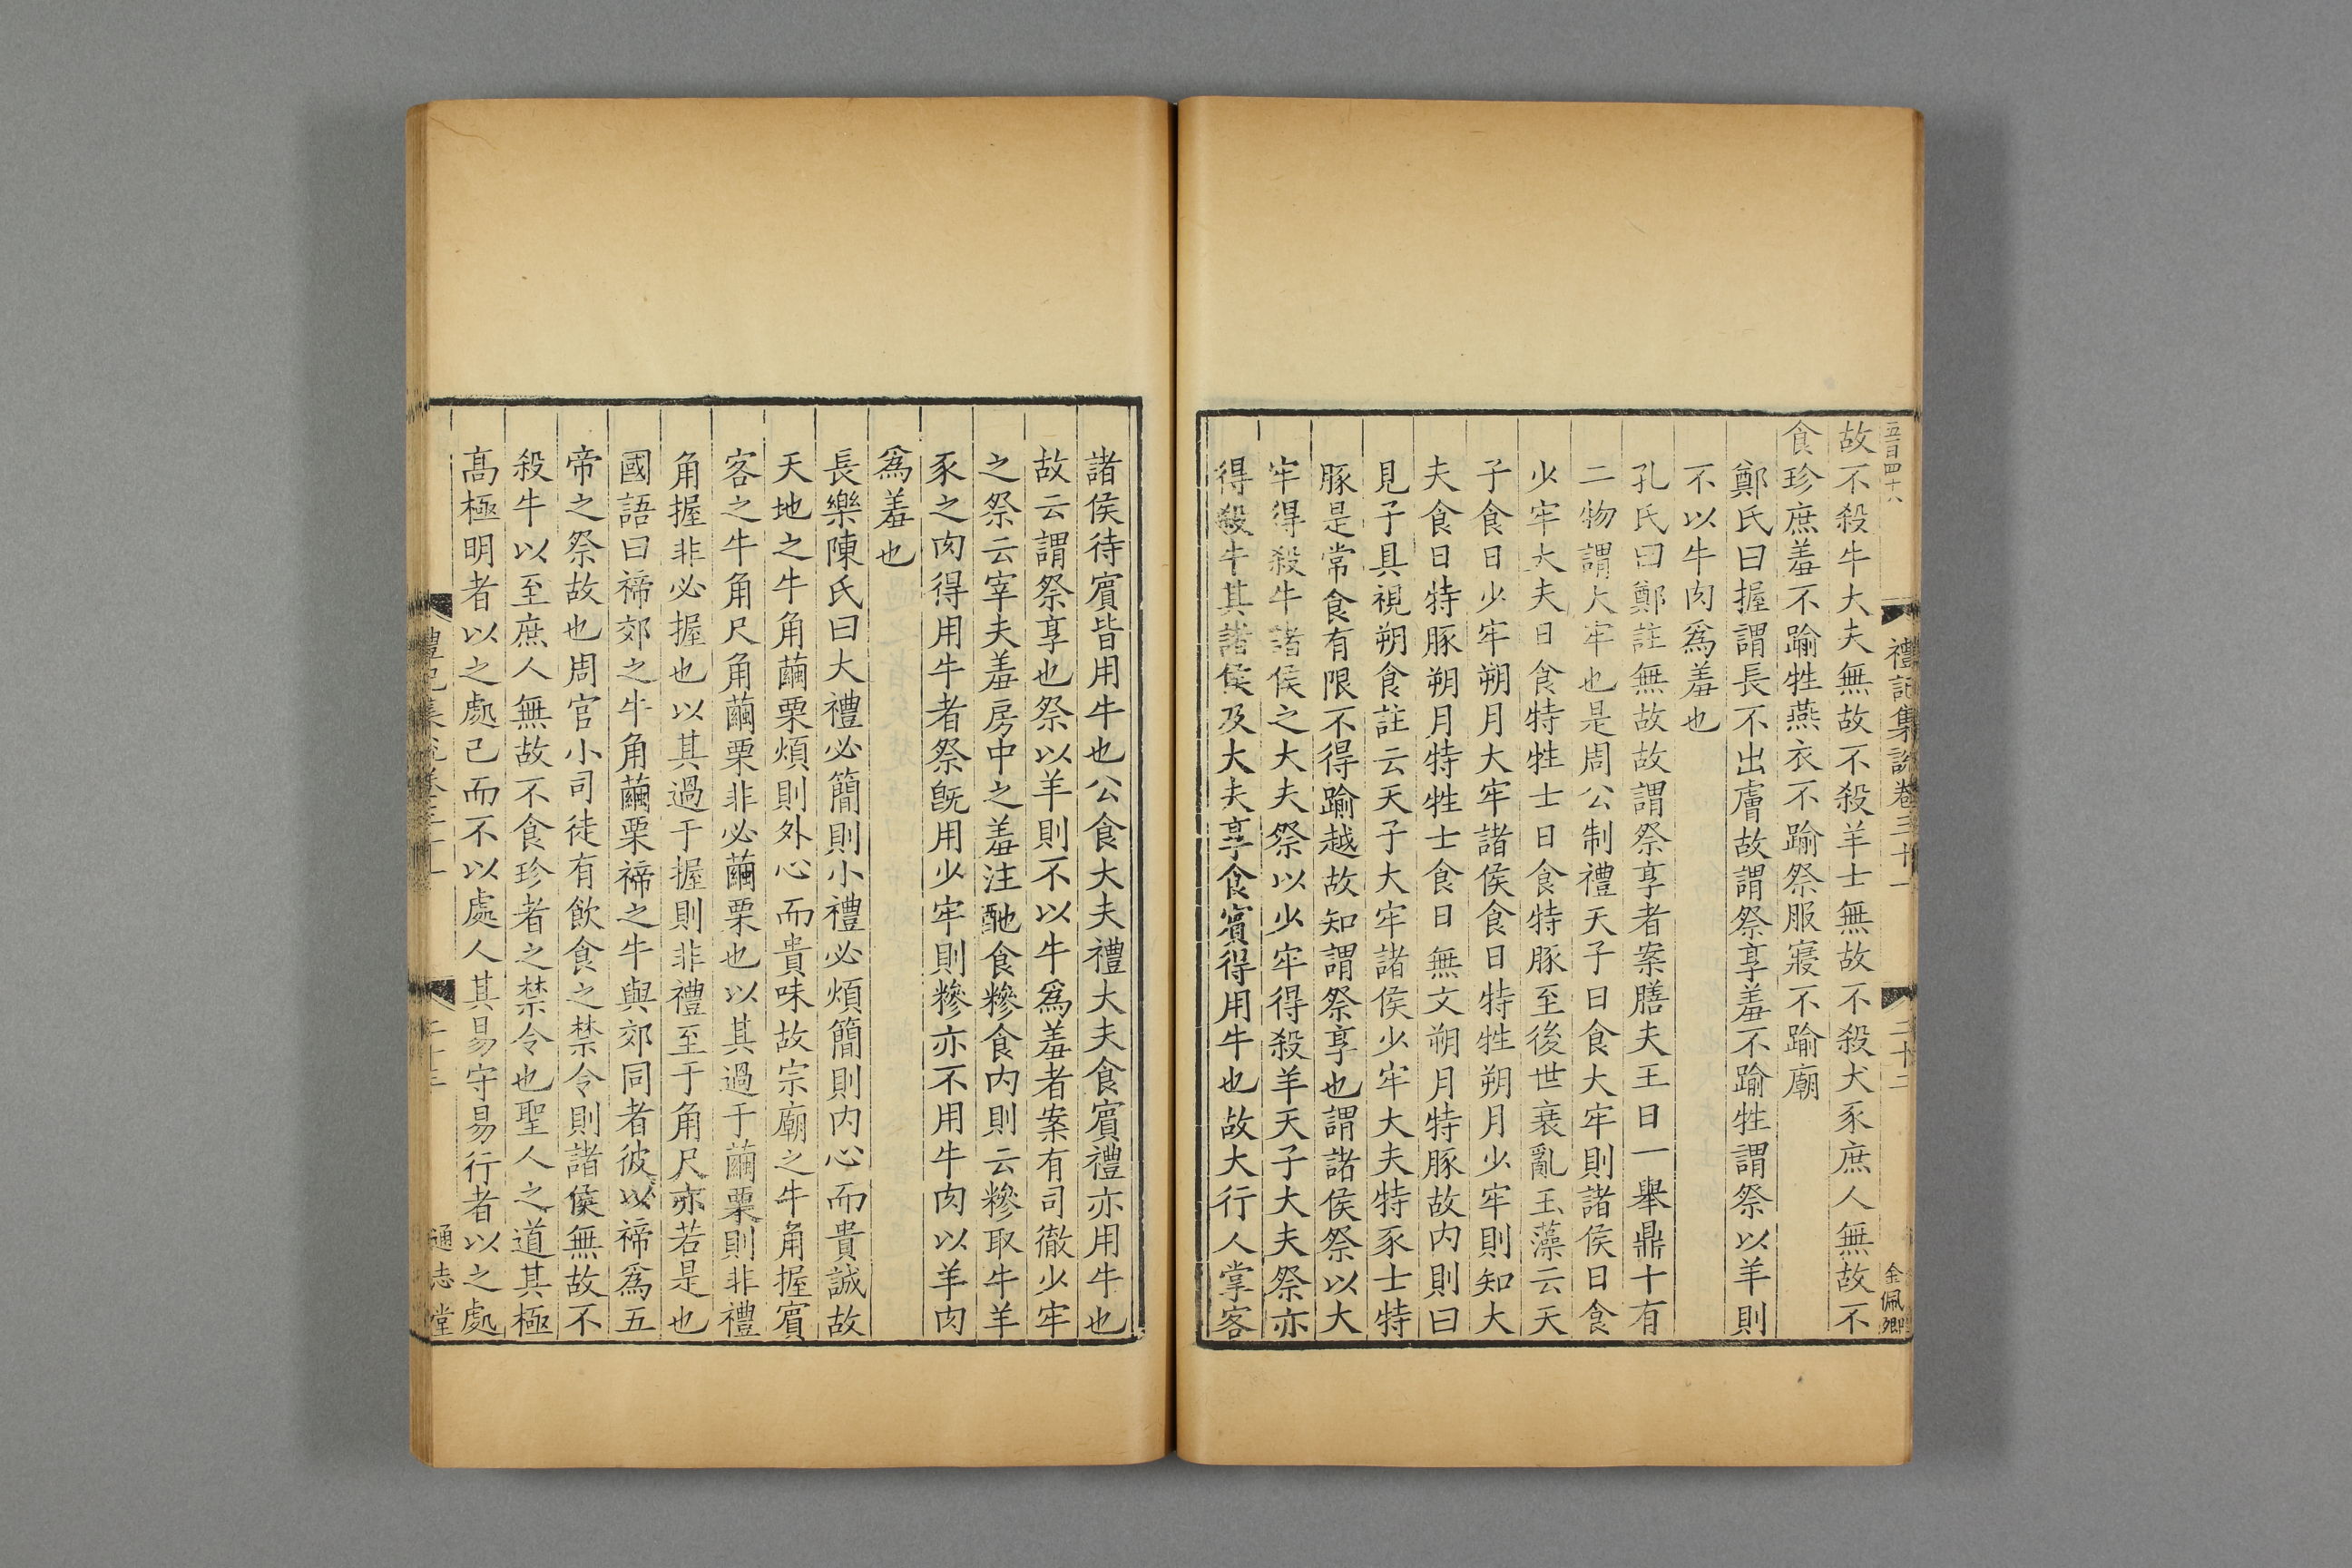 五百四十八
禮記集說卷三十一
二十二
金佩卿
故不殺牛大夫無故不殺羊士無故不殺犬豕庶人無故不
食珍庶羞不踰牲燕衣不踰祭服寢不踰廟
鄭氏曰握謂長不出膚故謂祭享羞不踰牲謂祭以羊則
不以牛肉爲羞也
孔氏曰鄭註無故故謂祭享者案膳夫王日一舉鼎十有
二物謂大牢也是周公制禮天子日食大牢則諸侯日食
少牢大夫日食特牲士日食特豚至後世衰亂玉藻云天
子食日少牢朔月大牢諸侯食日特牲朔月少牢則知大
夫食日特豚朔月特牲士食日無文朔月特豚故内則曰
見子具視朔食註云天子大牢諸侯少牢大夫特豕士特
豚是常食有限不得踰越故知謂祭享也謂諸侯祭以大
牢得殺牛諸侯之大夫祭以少牢得殺羊天子大夫祭亦
得殺牛其諸侯及大夫享食賓得用牛也故大行人掌客
諸侯待賓皆用牛也公食大夫禮大夫食賓禮亦用牛也
故云謂祭享也祭以羊則不以牛爲羞者案有司徹少牢
之祭云宰夫羞房中之羞注酏食糝食内則云糝取牛羊
豕之肉得用牛者祭既用少牢則糝亦不用牛肉以羊肉
爲羞也
長樂陳氏曰大禮必簡則小禮必煩簡則内心而貴誠故
天地之牛角繭栗煩則外心而貴味故宗廟之牛角握賓
客之牛角尺角繭栗非必繭栗也以其過于繭栗則非禮
角握非必握也以其過于握則非禮至于角尺亦若是也
國語曰禘郊之牛角繭栗禘之牛與郊同者彼以禘爲五
帝之祭故也周官小司徒有飲食之禁令則諸侯無故不
殺牛以至庶人無故不食珍者之禁令也聖人之道其極
高極明者以之處己而不以處人其易守易行者以之處
禮記集說卷三十一
通志堂